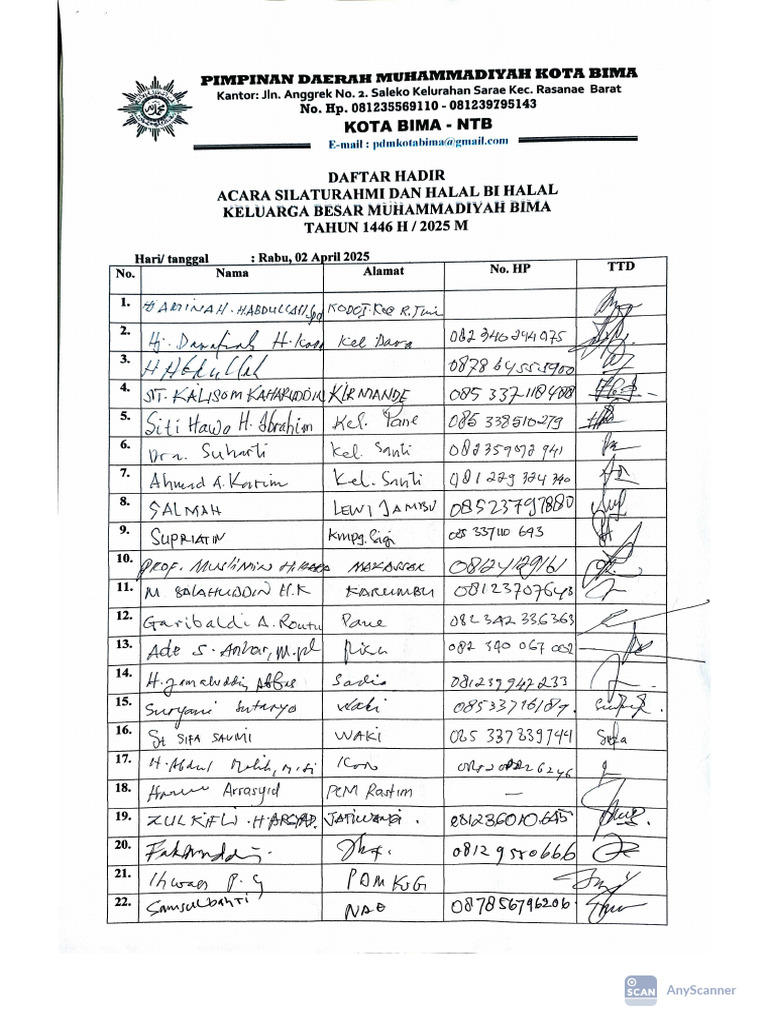 PIMPINAN DAERAH MUHAMMADIYAH KOTA BIMA
Kantor: Jln. Anggrek No. 2. Saleko Kelurahan Sarae Kec. Rasanae Barat
No. Hp. 081235569110 - 081239795143
KOTA BIMA - NTB
E-mail : pdmkotabima@gmail.com
DAFTAR HADIR
ACARA SILATURAHMI DAN HALAL BI HALAL
KELUARGA BESAR MUHAMMADIYAH BIMA
TAHUN 1446 H / 2025 M
Hari/ tanggal : Rabu, 02 April 2025
No. Nama Alamat No. HP TTD
1. Hj AMINAH. HABDULLAH
2. Hj. H. Kel Dara 082 340 294 075
3. H Abdullah
4. ST. KALISOM KAHARUDDIN 085 337 118 488
5. Siti Hawo H. Ibrahim Kel. Pane 085 338510279
6. Dra. Suharti Kel. Santi 082359072941
7. Ahmad A. Karim Kel. Santi
8. SALMAH LEWI JAMBU 08523797880
9. SUPRIATIN
10. PROF. MUSLIMIN MAKASSAR 0812412916
11. M SALAHUDDIN H.K KARUMBU 08123707643
12. Garibaldi A. Pane 082 342 336363
13. Ade S. Anbar, M.pl 082 340 067 002
14. H. Jamaluddin Abbas Sadia 081239947233
15. Suryani Sutaryo Waki
16. St SIFA SAUMI WAKI 085 337 239 744
17. H. Abdul
18. Arrasyid PCM Rastim —
19. ZULKIFLI. JATIWANGI. 081236010645
20. 08129580666
21.
22. Samsulbahri NAE 087856796206
SCAN AnyScanner